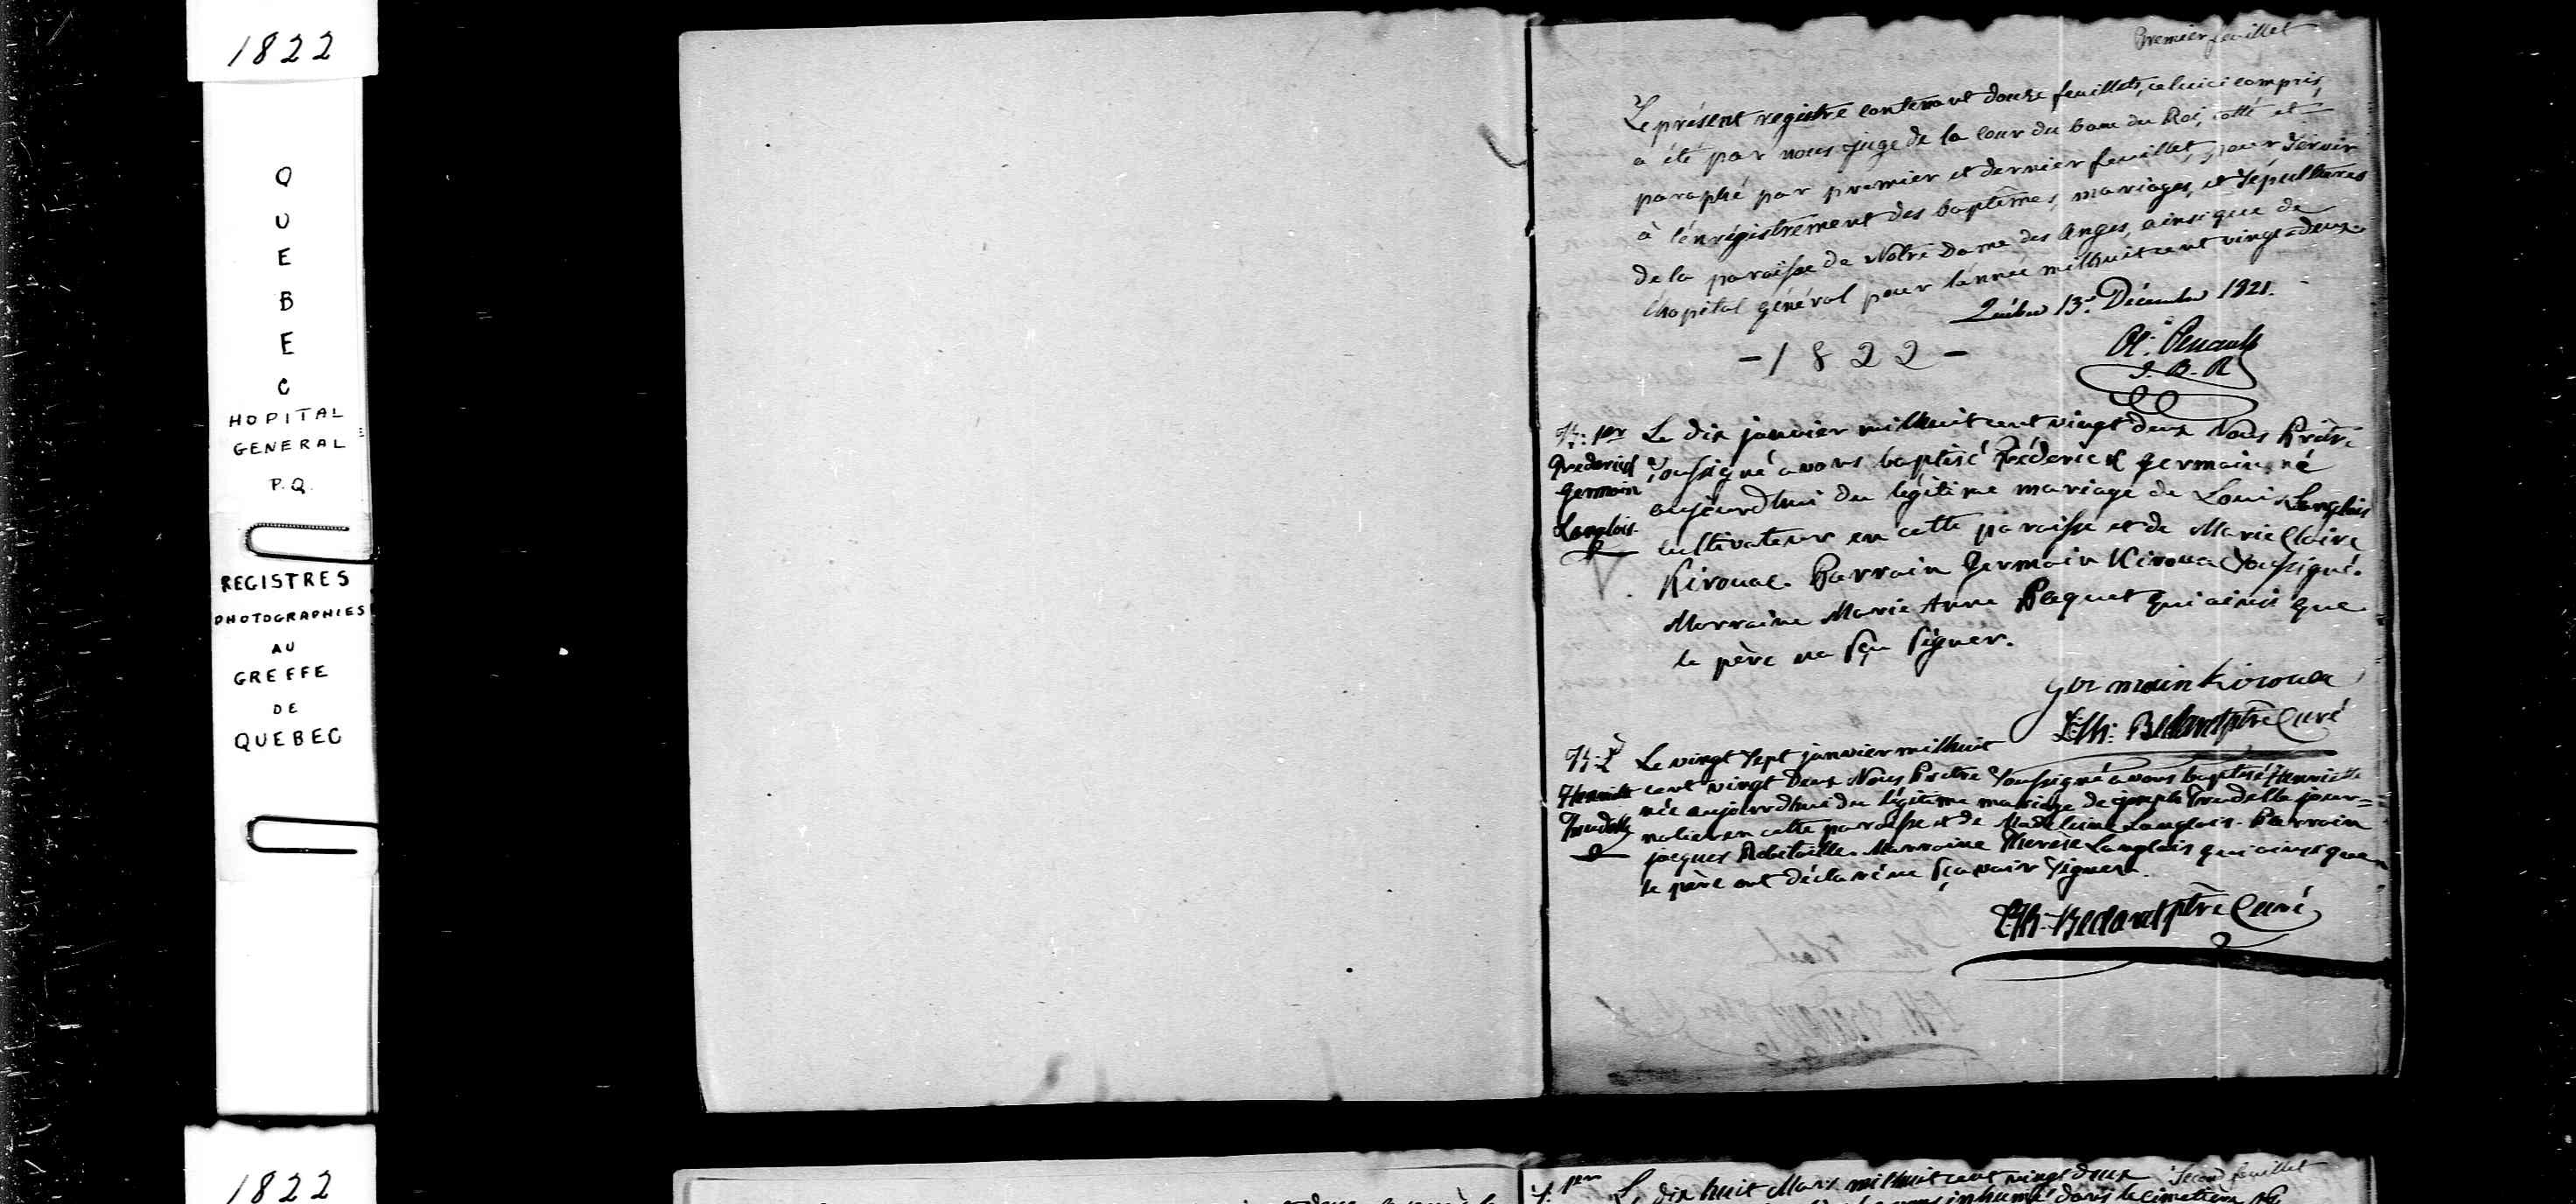 1822
QUEBEC
HOPITAL
GENERAL
P.Q.
REGISTRES
PHOTOGRAPHIES
AU
GREFFE
DE
QUEBEC
1822
Premier feuillet
Le présent registre contenant douze feuillets, celuici compris,
a été par nous juge de la cour du banc du Roi, cotté et
paraphé par premier et dernier feuillet, pour servir
à l'enrégistrement des baptêmes, mariages, et sépultures
de la paroisse de Notre Dame des Anges, ainsi que de
l'hopital général pour l'année mil huit cent vingt-deux.
Québec 13e Décembre 1821.
- 1822 -
J.B.R
B: 1er
Frederick
Germain
Langlois.
Le dix janvier mil huit cent vingt deux Nous Prêtre
soussigné avons baptisé Fréderick Germain né
aujourd'hui du légitime mariage de Louis Langlois
cultivateur en cette paroisse et de Marie Claire
Kirouac. Parrain Germain Kirouac soussigné.
Marraine Marie Anne Paquet qui ainsi que
le père na sçu signer.
germain Kirouac
Bedard ptre Curé
B: 2
Henriette
Trudelle
Le vingt sept janvier mil huit
cent vingt deux Nous Prêtre soussigné avons baptisé Henriette
née aujourdhui du légitime mariage de joseph Trudelle jour=
nalier en cette paroisse et de Madeleine Langlois. Parrain
jacques Robitaille. Marraine Therèse Langlois qui ainsi que
le père ont déclaré ne sçavoir signer.
Bedard ptre Curé
Second feuillet
S. 1er
Le dix huit Mars mil huit cent vingt deux
inhumé dans le cimetiere